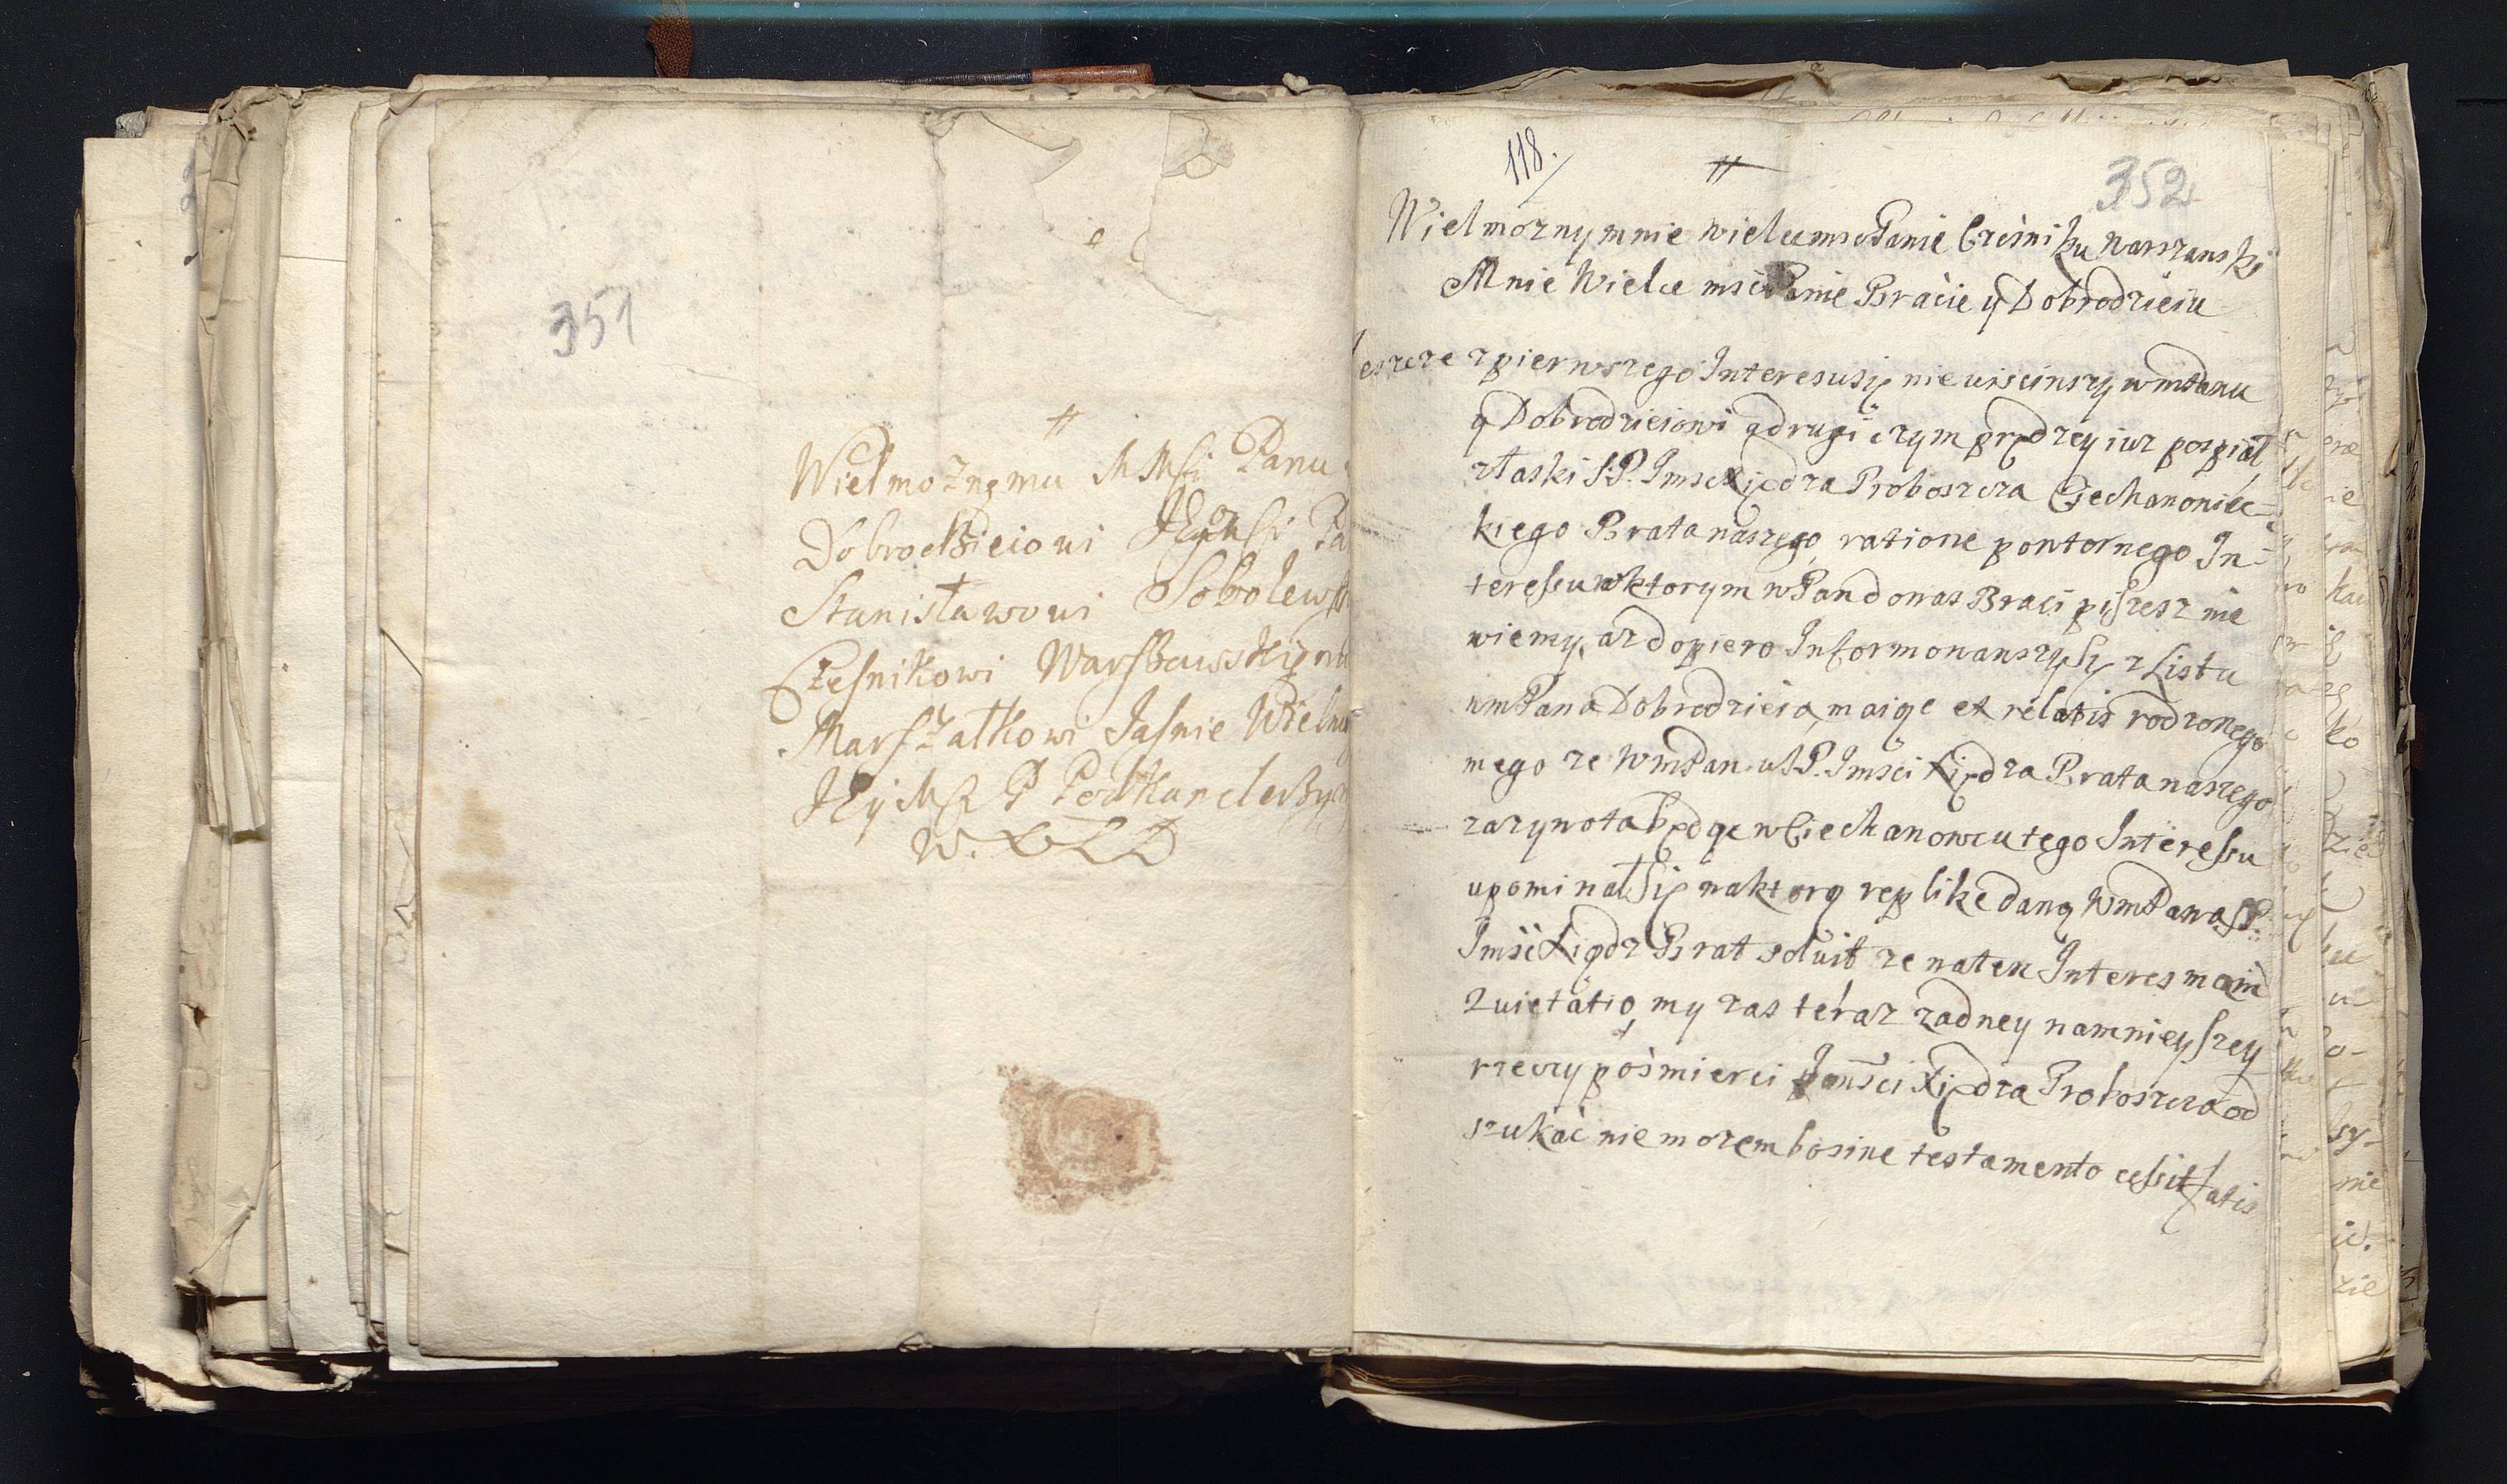 351
#
Wielmoznemu M Msci Panu
Dobrodzieiowi JEyMsci Pa
Stanisławowi Sobolewsk
Czesnikowi Warszawskiemu
Marszałkowi Jasnie Wielmo
JEyMsci P Podkanclerzyn
W. X L L
118.
#
352
Wielmozny mnie wielce msci Panie Czesniku Warszawski
Mnie Wielce msci Panie Bracie y Dobrodzieiu
Ieszcze z pierwszego Interesu się nie uisciwszy wmPanu
y Dobrodzieiowi a drugi czym prędzey iuz pospiał
z łaski S.P. Imsci Xiędza Proboszcza Ciechanowiec-
kiego Brata naszego ratione powtornego In-
teressu w ktorym wPan do nas Braci piszesz nie
wiemy, az dopiero Informowawszy się z Listu
wmPana Dobrodzieia, maiąc et relatis rodzonego
mego ze WmPan u S.P. Imsci Xiędza Brata naszego
za zywota będąc w Ciechanowcu tego Interessu
upominał się na ktorą replike daną WmPana S.P.
Imsci Xiądz Brat soluit ze na ten Interes mam
Quietatio, my zas teraz zadney namnieyszey
rzeczy po smierci Jmsci Xiędza Proboszcza od
szukac nie mozem bo sine testamento cessit fatis